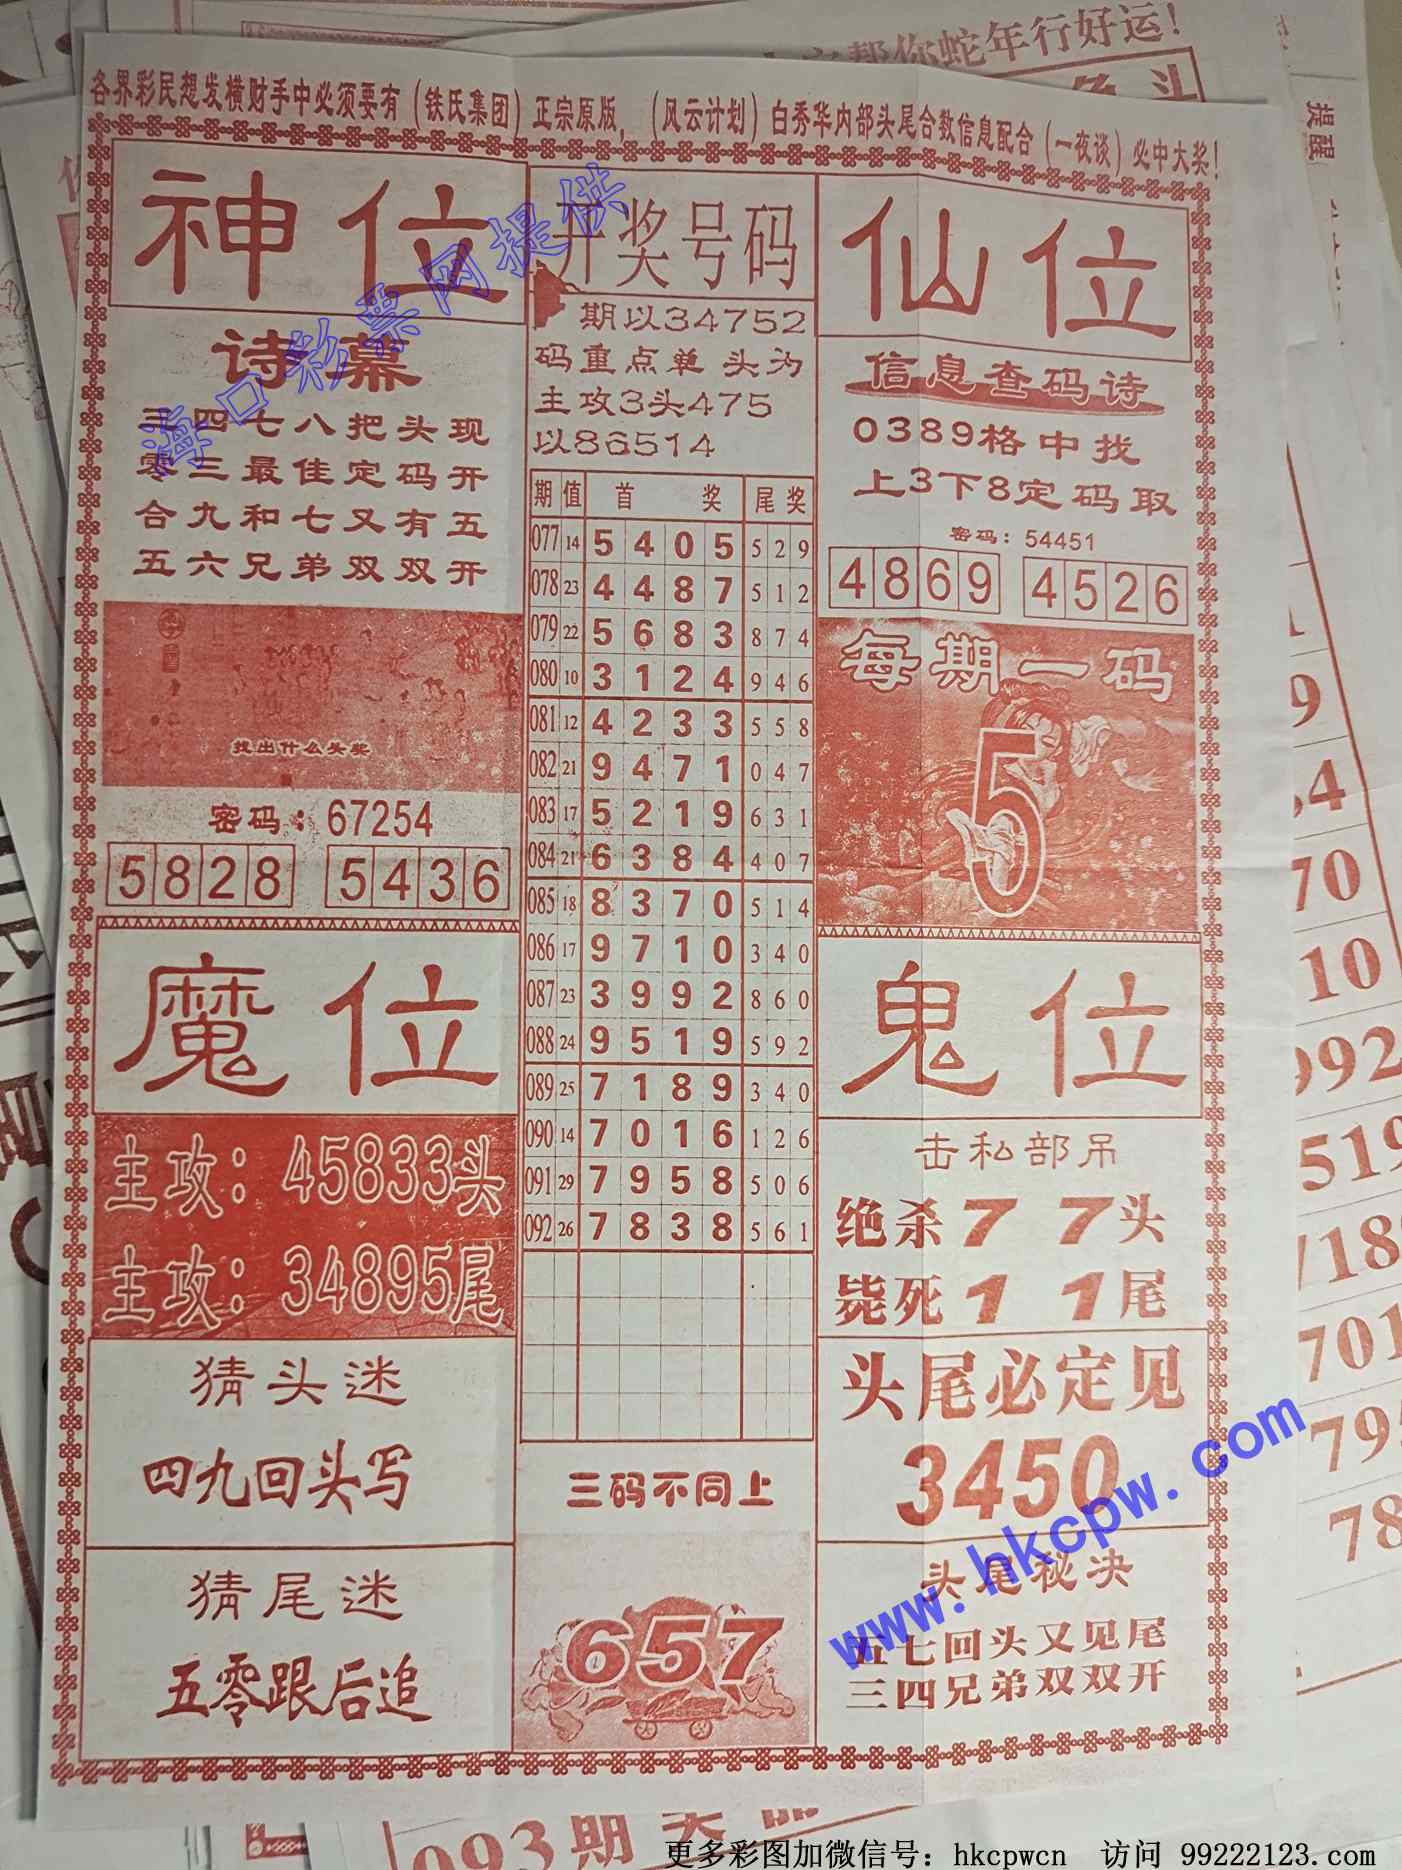 帮你蛇年行好运！
各界彩民想发横财手中必须要有（铁氏集团）正宗原版，（风云计划）白秀华内部头尾合数信息配合（一夜谈）必中大奖！
神位
诗幕
三四七八把头现
零三最佳定码开
合九和七又有五
五六兄弟双双开
找出什么头奖
密码：67254
5828 5436
魔位
主攻：45833头
主攻：34895尾
猜头迷
四九回头写
猜尾迷
五零跟后追
开奖号码
期以34752
码重点单 头为
主攻3头475
以86514
期 值 首 奖 尾奖
077 14 5 4 0 5 5 2 9
078 23 4 4 8 7 5 1 2
079 22 5 6 8 3 8 7 4
080 10 3 1 2 4 9 4 6
081 12 4 2 3 3 5 5 8
082 21 9 4 7 1 0 4 7
083 17 5 2 1 9 6 3 1
084 21 6 3 8 4 4 0 7
085 18 8 3 7 0 5 1 4
086 17 9 7 1 0 3 4 0
087 23 3 9 9 2 8 6 0
088 24 9 5 1 9 5 9 2
089 25 7 1 8 9 3 4 0
090 14 7 0 1 6 1 2 6
091 29 7 9 5 8 5 0 6
092 26 7 8 3 8 5 6 1
三码不同上
657
仙位
信息查码诗
0389格中找
上3下8定码取
密码：54451
4869 4526
每期一码
5
鬼位
击私部吊
绝杀7 7头
毙死1 1尾
头尾必定见
3450
头尾秘决
五七回头又见尾
三四兄弟双双开
海口彩票网提供
www.hkcpw.com
093期
更多彩图加微信号：hkcpwcn 访问 99222123.com